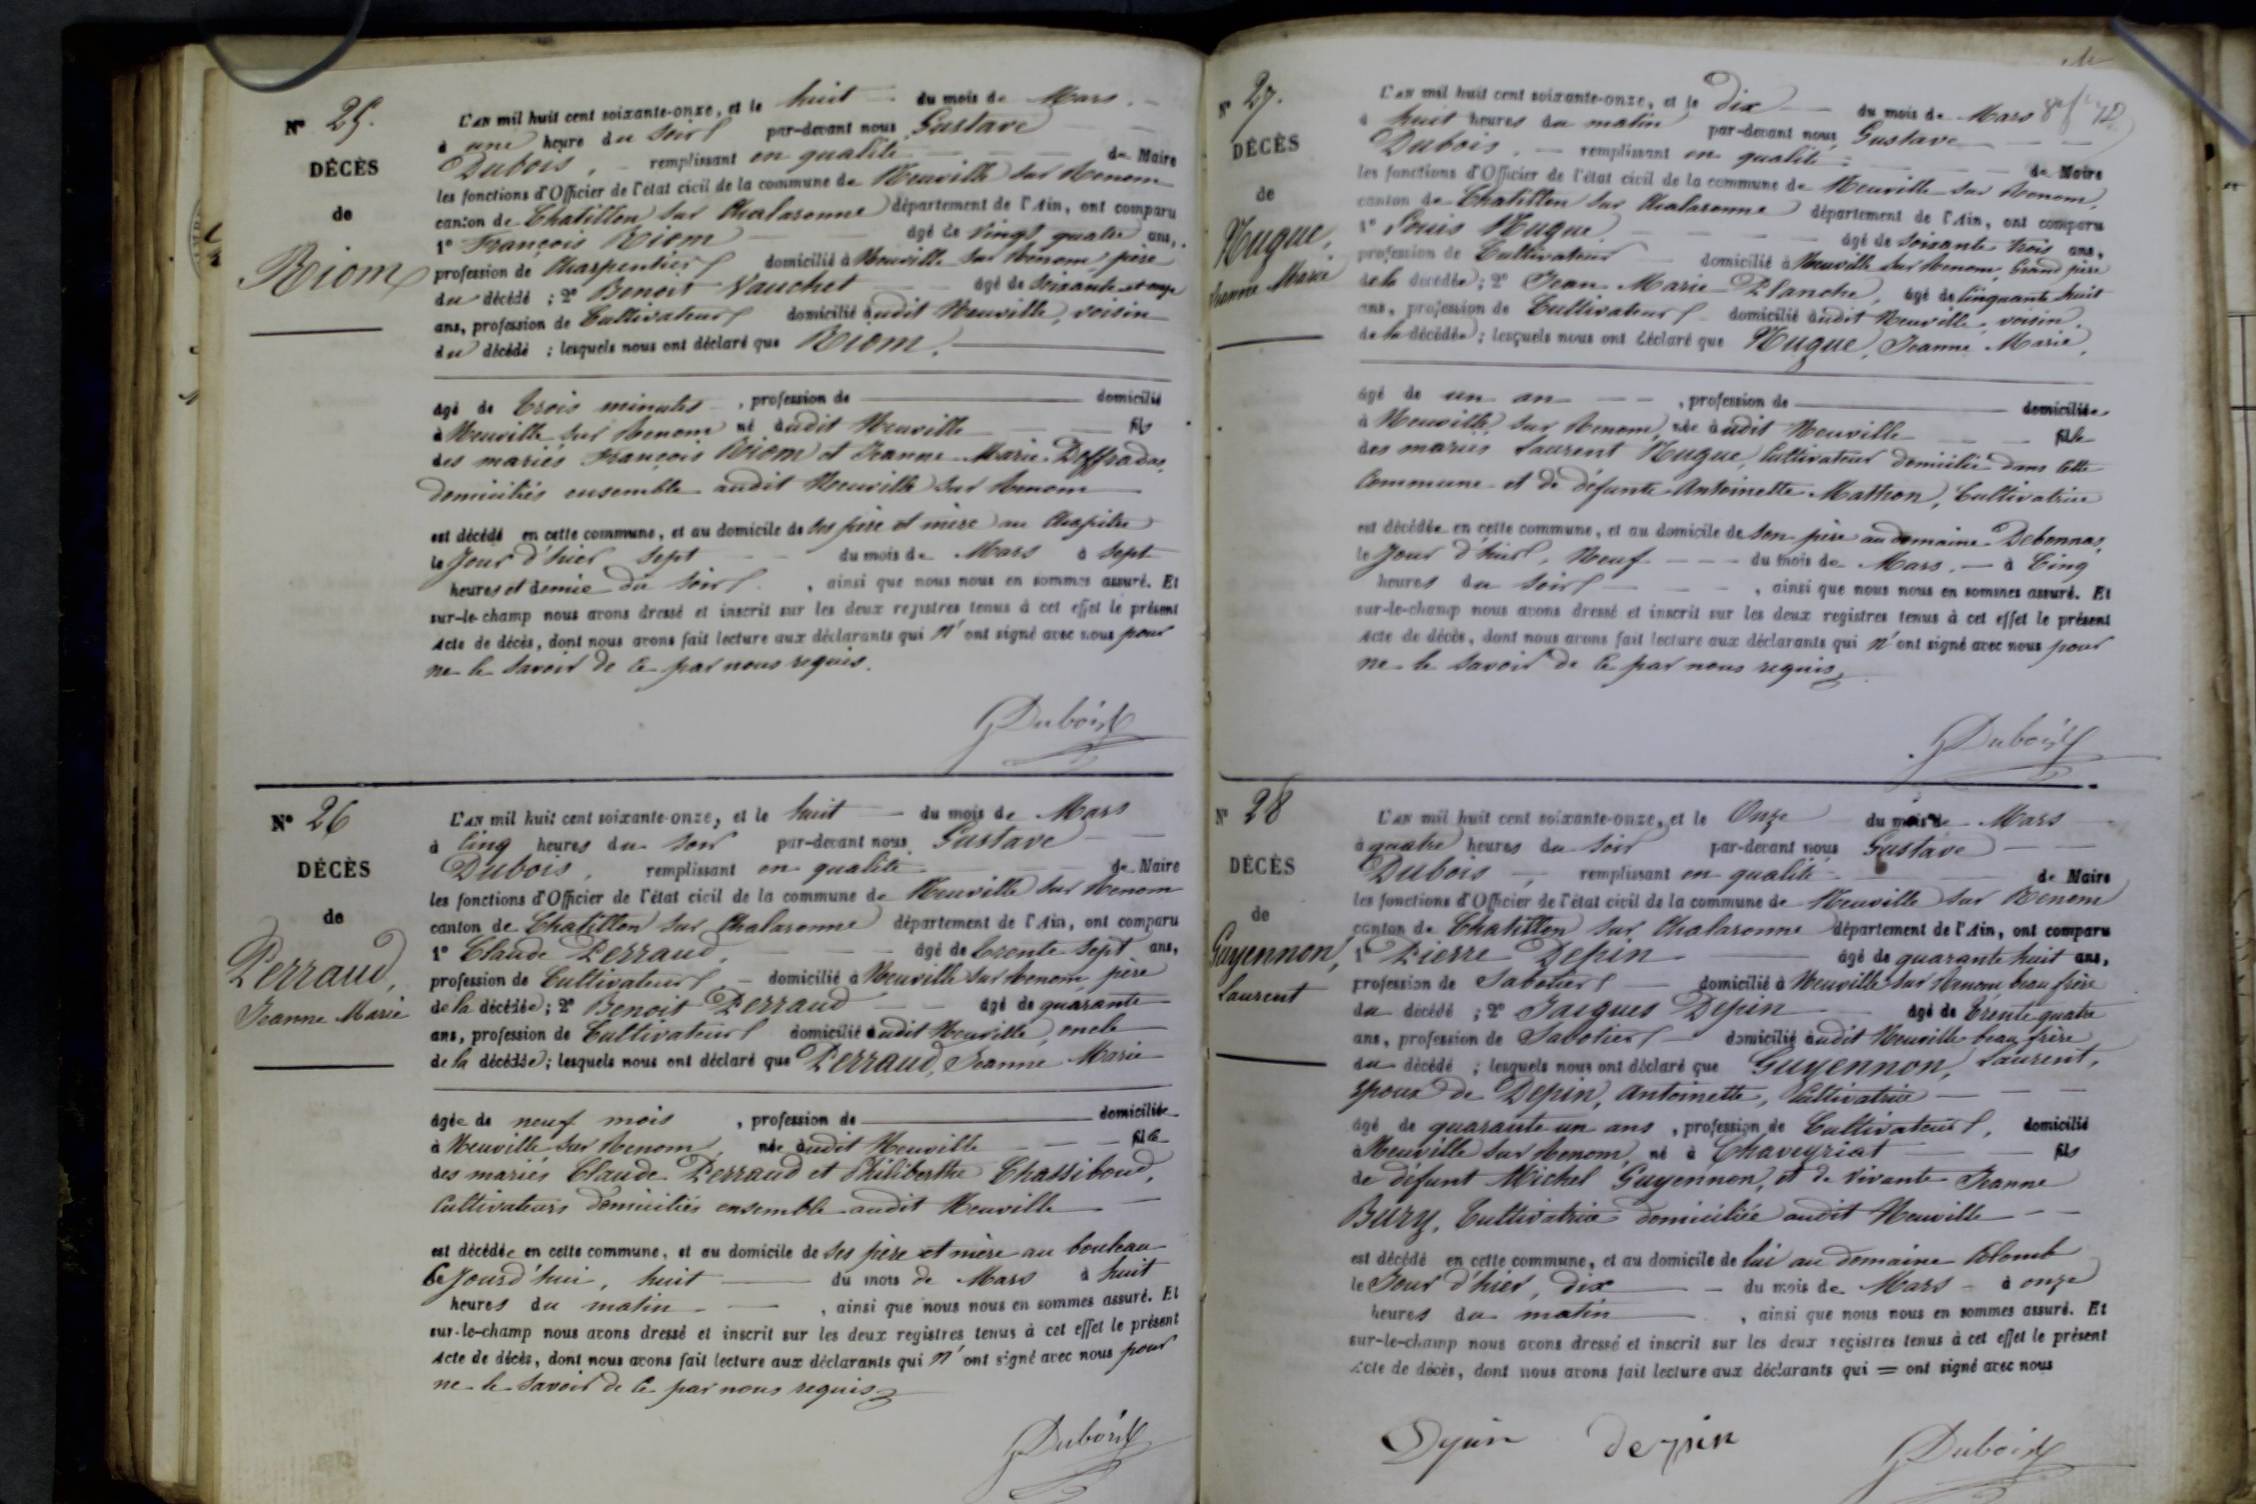 N° 25.
DÉCÈS
de
Riom
L'AN mil huit cent soixante-onze, et le huit du mois de Mars.
à une heure du soir par-devant nous Gustave
Dubois, remplissant en qualité de Maire
les fonctions d'Officier de l'état civil de la commune de Neuville sur Renom
canton de Chatillon sur Chalaronne département de l'Ain, ont comparu
1° François Riom âgé de vingt quatre ans,
profession de Charpentier domicilié à Neuville sur Renom, père
du décédé ; 2° Benoit Vauchet âgé de soixante et onze
ans, profession de Cultivateur domicilié audit Neuville, voisin
du décédé ; lesquels nous ont déclaré que Riom.
âgé de trois minutes, profession de domicilié
à Neuville sur Renom né audit Neuville fils
des mariés François Riom et Jeanne Marie Deffradas,
domiciliés ensemble audit Neuville sur Renom
est décédé en cette commune, et au domicile de ses père et mère au Chapitre
le Jour d'hier sept du mois de Mars à sept
heures et demie du soir, ainsi que nous nous en sommes assuré. Et
sur-le-champ nous avons dressé et inscrit sur les deux registres tenus à cet effet le présent
Acte de décès, dont nous avons fait lecture aux déclarants qui n'ont signé avec nous pour
ne le savoir de ce par nous requis.
GDubois
N° 26
DÉCÈS
de
Perraud,
Jeanne Marie
L'AN mil huit cent soixante-onze, et le huit du mois de Mars
à cinq heures du soir par-devant nous Gustave
Dubois, remplissant en qualité de Maire
les fonctions d'Officier de l'état civil de la commune de Neuville sur Renom
canton de Chatillon sur Chalaronne département de l'Ain, ont comparu
1° Claude Perraud, âgé de trente sept ans,
profession de Cultivateur, domicilié à Neuville sur Renom, père
de la décédée ; 2° Benoit Perraud âgé de quarante
ans, profession de Cultivateur domicilié audit Neuville, oncle
de la décédée ; lesquels nous ont déclaré que Perraud, Jeanne Marie
âgée de neuf mois, profession de domiciliée
à Neuville sur Renom, née audit Neuville fille
des mariés Claude Perraud et Philiberthe Chassiboud,
Cultivateurs domiciliés ensemble audit Neuville
est décédée en cette commune, et au domicile de ses père et mère au bouleau
ce Jourd'hui, huit du mois de Mars à huit
heures du matin, ainsi que nous nous en sommes assuré. Et
sur-le-champ nous avons dressé et inscrit sur les deux registres tenus à cet effet le présent
Acte de décès, dont nous avons fait lecture aux déclarants qui n'ont signé avec nous pour
ne le savoir de ce par nous requis
GDubois
N° 27.
DÉCÈS
de
Nugue,
Jeanne Marie
L'AN mil huit cent soixante-onze, et le dix du mois de Mars
à huit heures du matin par-devant nous Gustave
Dubois, remplissant en qualité de Maire
les fonctions d'Officier de l'état civil de la commune de Neuville sur Renom,
canton de Chatillon sur Chalaronne département de l'Ain, ont comparu
1° Louis Nugue âgé de soixante trois ans,
profession de Cultivateur domicilié à Neuville sur Renom, Grand père
de la décédée ; 2° Jean Marie Planche, âgé de cinquante huit
ans, profession de Cultivateur domicilié audit Neuville, voisin
de la décédée ; lesquels nous ont déclaré que Nugue, Jeanne Marie,
âgé de un an, profession de domiciliée
à Neuville sur Renom, née audit Neuville fille
des mariés Laurent Nugue, Cultivateur domicilié dans cette
Commune et de défunte Antoinette Mathon, Cultivatrice
est décédée en cette commune, et au domicile de son père au domaine Debonnas,
le Jour d'hier, Neuf du mois de Mars, à Cinq
heures du soir, ainsi que nous nous en sommes assuré. Et
sur-le-champ nous avons dressé et inscrit sur les deux registres tenus à cet effet le présent
Acte de décès, dont nous avons fait lecture aux déclarants qui n'ont signé avec nous pour
ne le savoir de ce par nous requis,
GDubois
N° 28
DÉCÈS
de
Guyennon,
Laurent
L'AN mil huit cent soixante-onze, et le Onze du mois de Mars
à quatre heures du soir par-devant nous Gustave
Dubois, remplissant en qualité de Maire
les fonctions d'Officier de l'état civil de la commune de Neuville sur Renom
canton de Chatillon sur Chalaronne département de l'Ain, ont comparu
1° Pierre Depin âgé de quarante huit ans,
profession de Sabotier domicilié à Neuville sur Renom beau frère
du décédé ; 2° Jacques Depin âgé de trente quatre
ans, profession de Sabotier domicilié audit Neuville beau frère
du décédé ; lesquels nous ont déclaré que Guyennon, Laurent,
époux de Depin, Antoinette, Cultivatrice
âgé de quarante un ans, profession de Cultivateur, domicilié
à Neuville sur Renom, né à Chaveyriat fils
de défunt Michel Guyennon, et de vivante Jeanne
Bury, Cultivatrice domiciliée audit Neuville
est décédé en cette commune, et au domicile de lui au domaine Colomb
le Jour d'hier, dix du mois de Mars à onze
heures du matin, ainsi que nous nous en sommes assuré. Et
sur-le-champ nous avons dressé et inscrit sur les deux registres tenus à cet effet le présent
Acte de décès, dont nous avons fait lecture aux déclarants qui = ont signé avec nous
Depin depin GDubois